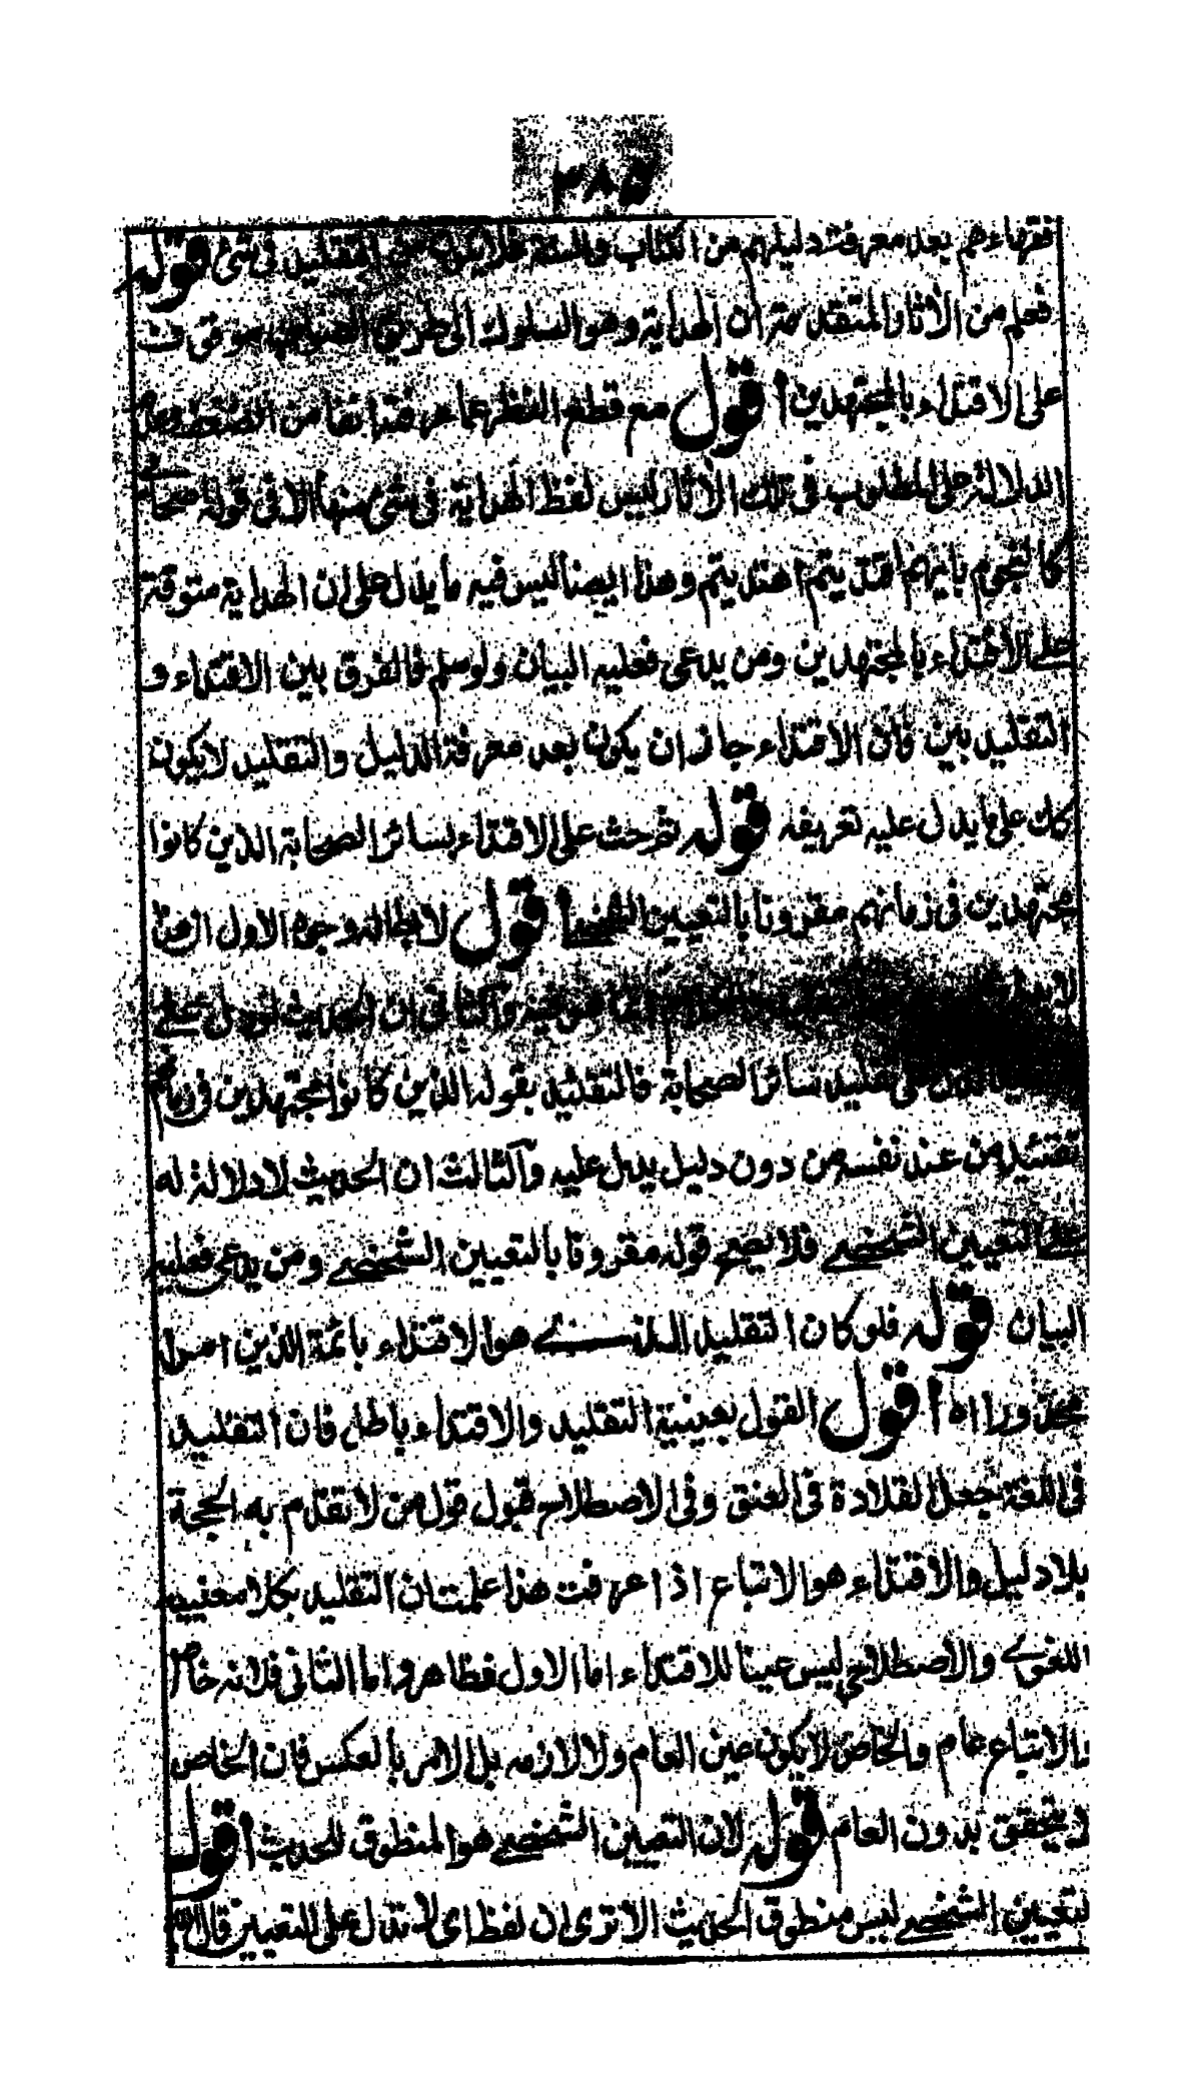 ٣٨٥
فقهاءهم بعد معرفة دليلهم من الكتاب والسنة فلا يكون من التقليد فى شئ قوله
فعلم من الاثار المتقدمة ان الهداية وهو السلوك الى طريق الصواب موقوف
على الاقتداء بالمجتهدين اقول مع قطع النظر عما عرفت انفا من الضعف وعدم
الدلالة على المطلوب فى تلك الاثار ليس لفظ الهداية فى شئ منها الا فى قوله اصحابى
كالنجوم بايهم اقتديتم اهتديتم وهذا ايضا ليس فيه ما يدل على ان الهداية متوقفة
على الاقتداء بالمجتهدين ومن يدعى فعليه البيان ولو سلم فالفرق بين الاقتداء و
التقليد بين فان الاقتداء جاز ان يكون بعد معرفة الدليل والتقليد لا يكون
كك على ما يدل عليه تعريفه قوله ثم حث على الاقتداء بسائر الصحابة الذين كانوا
مجتهدين فى زمانهم مقرونا بالتعيين الشخصى اقول لابطاله وجوه الاول
والثانى ان الحديث لو دل على
على تقليد سائر الصحابة فالتقييد بقوله الذين كانوا مجتهدين فى زمانهم
تقييد من عند نفسه من دون دليل يدل عليه والثالث ان الحديث لا دلالة له
على التعيين الشخصى فلا يصح قوله مقرونا بالتعيين الشخصى ومن يدعى فعليه
البيان قوله فلو كان التقليد الذى هو الاقتداء بائمة الدين امرا
محذورا اه اقول القول بعينية التقليد والاقتداء باطل فان التقليد
فى اللغة جعل القلادة فى العنق وفى الاصطلاح قبول قول من لا تقدم به الحجة
بلا دليل والاقتداء هو الاتباع اذا عرفت هذا علمت ان التقليد بكلا معنييه
اللغوى والاصطلاحى ليس عينا للاقتداء اما الاول فظاهر واما الثانى فلانه خاص
والاتباع عام والخاص لا يكون عين العام ولا لازمه بل الامر بالعكس فان الخاص
لا يتحقق بدون العام قوله لان التعيين الشخصى هو المنطوق للحديث اقول
التعيين الشخصى ليس منطوق الحديث الا ترى ان لفظ اى لا تدل على التعيين قال الله